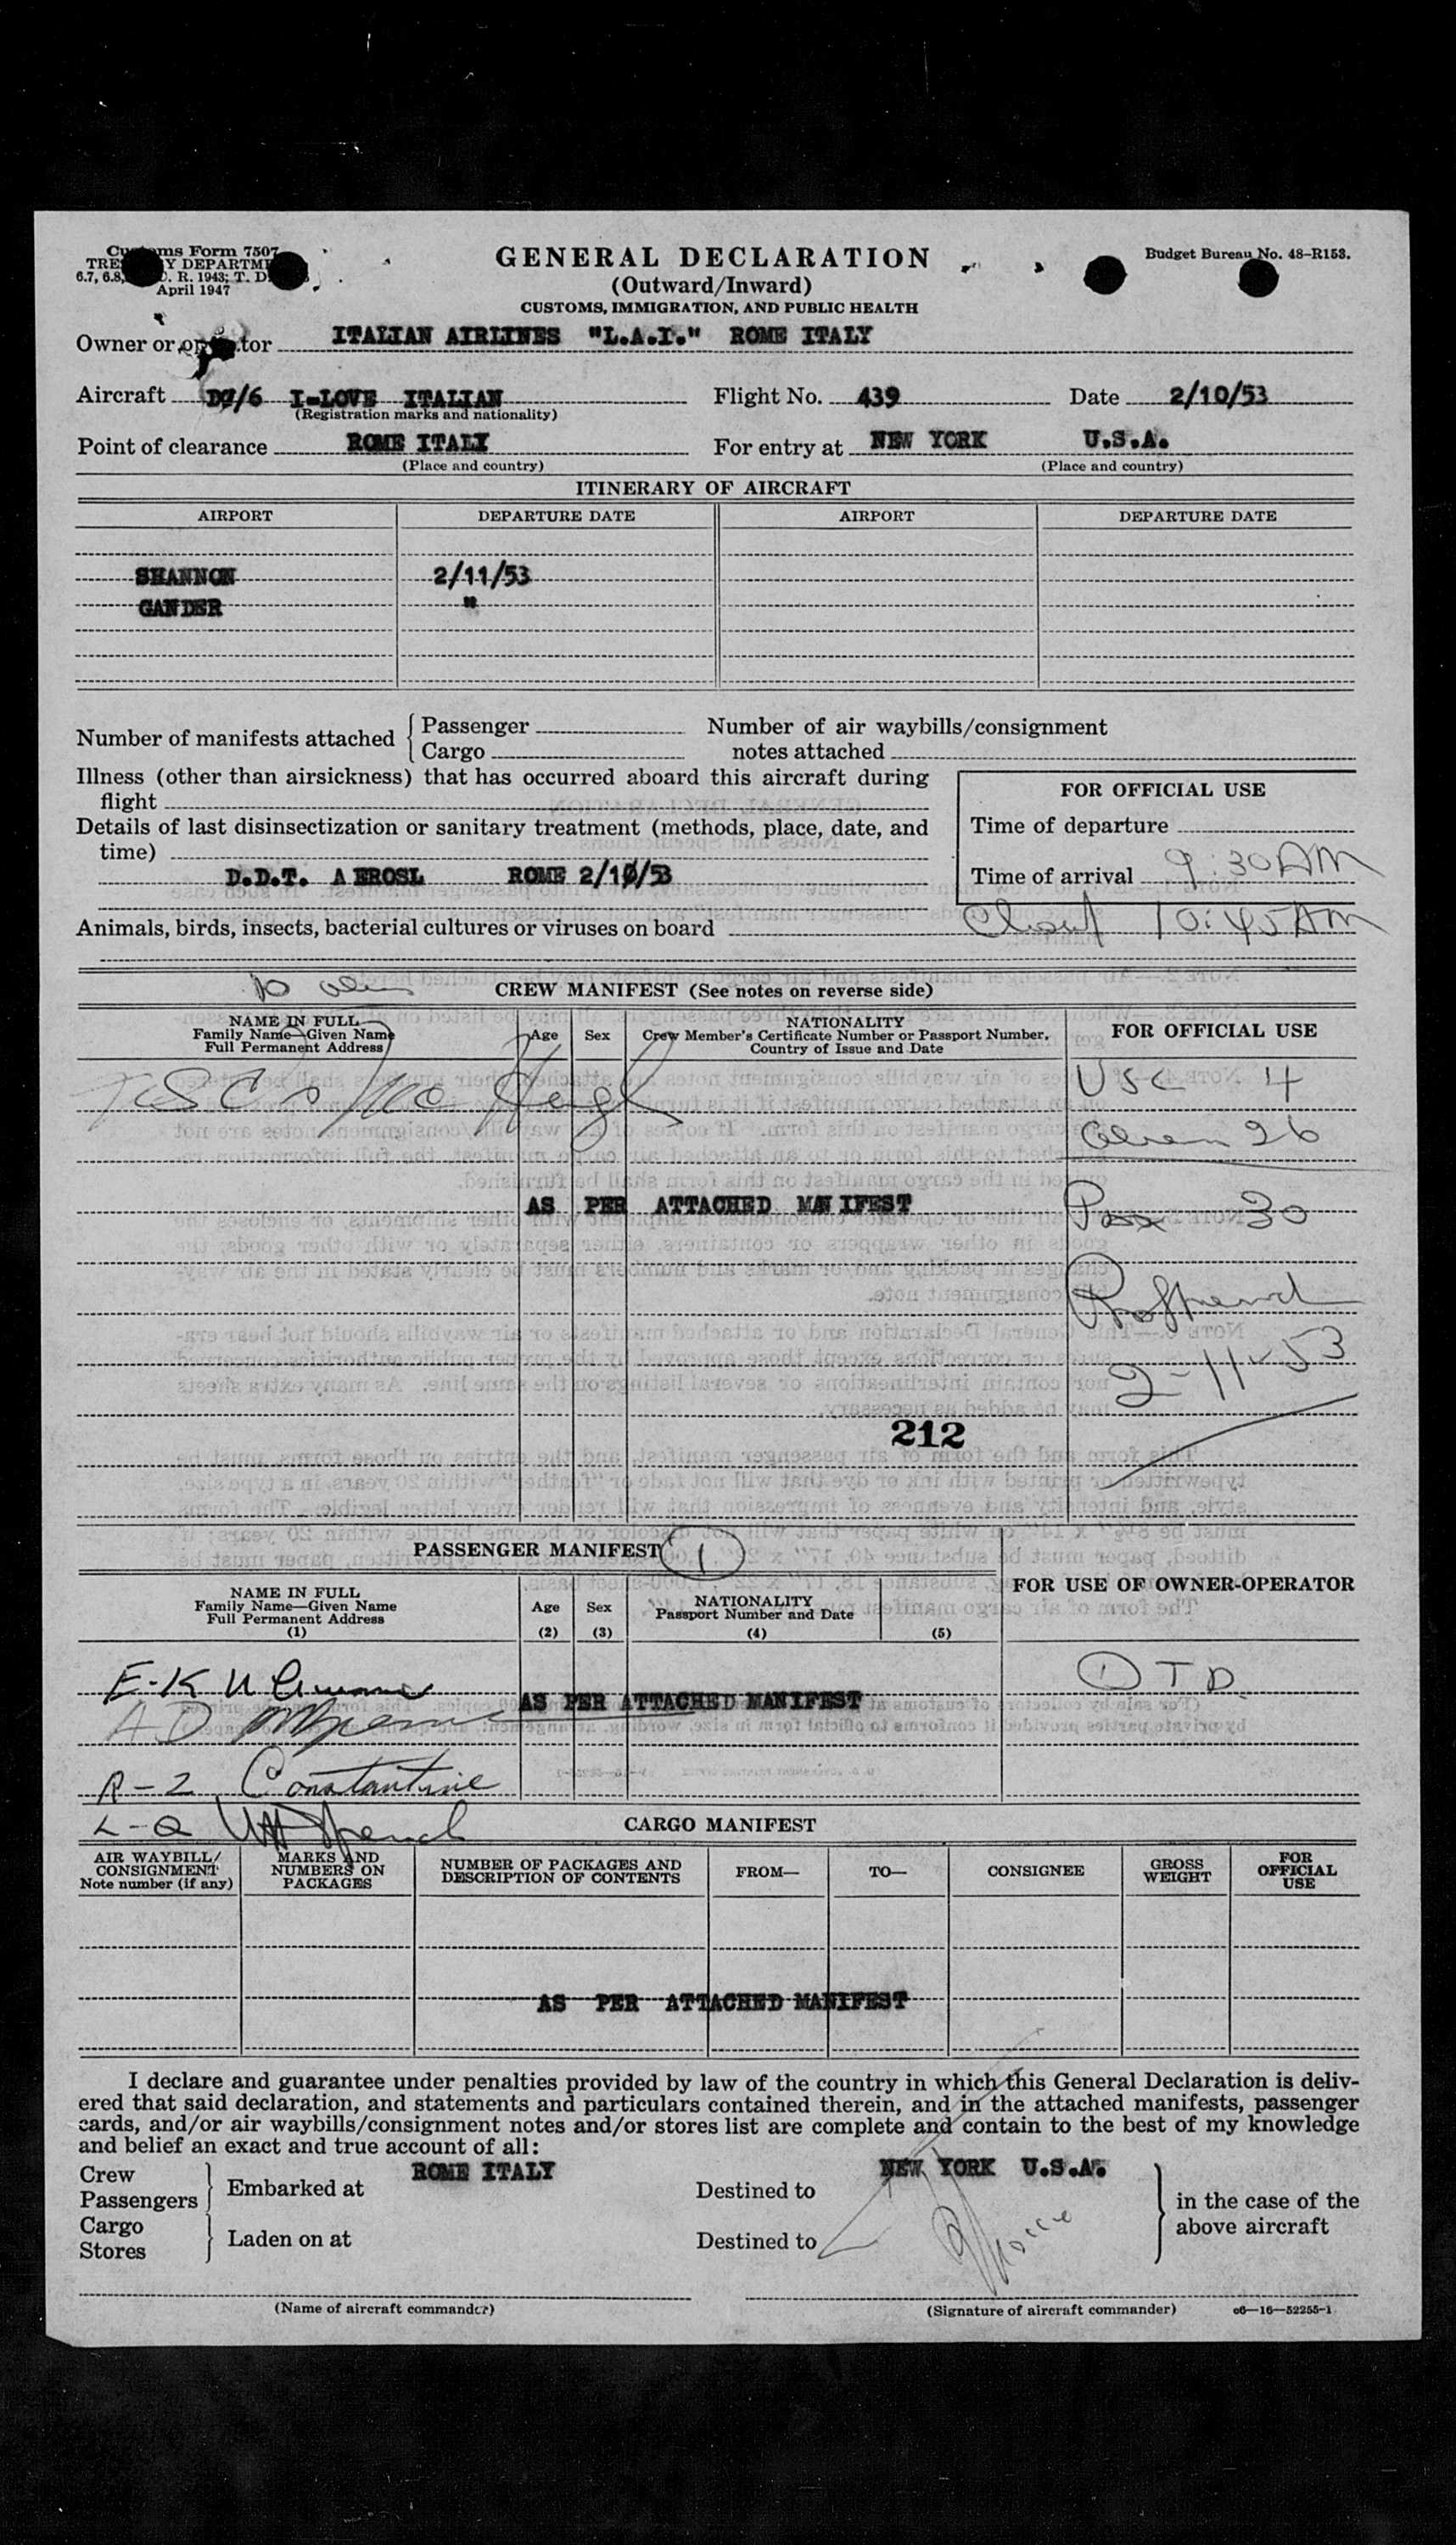 Customs Form 7507
TREASURY DEPARTMENT
6.7, 6.8, C. R. 1943; T. D.
April 1947
Budget Bureau No. 48-R153.
GENERAL DECLARATION
(Outward/Inward)
CUSTOMS, IMMIGRATION, AND PUBLIC HEALTH
Owner or operator ITALIAN AIRLINES "L.A.I." ROME ITALY
Aircraft DC/6 I-LOVE ITALIAN Flight No. 439 Date 2/10/53
(Registration marks and nationality)
Point of clearance ROME ITALY For entry at NEW YORK U.S.A.
(Place and country) (Place and country)
ITINERARY OF AIRCRAFT
AIRPORT DEPARTURE DATE AIRPORT DEPARTURE DATE
SHANNON 2/11/53
GANDER "
Number of manifests attached { Passenger Number of air waybills/consignment
Cargo notes attached
Illness (other than airsickness) that has occurred aboard this aircraft during
flight
FOR OFFICIAL USE
Details of last disinsectization or sanitary treatment (methods, place, date, and
time)
Time of departure
D.D.T. AEROSL ROME 2/10/53
Time of arrival 9:30 AM
10:45 AM
Animals, birds, insects, bacterial cultures or viruses on board
CREW MANIFEST (See notes on reverse side)
NAME IN FULL
Family Name—Given Name
Full Permanent Address
Age Sex
NATIONALITY
Crew Member's Certificate Number or Passport Number,
Country of Issue and Date
FOR OFFICIAL USE
USC 4
Alien 26
AS PER ATTACHED MANIFEST
Pax 30
2-11-53
212
PASSENGER MANIFEST 1
NAME IN FULL
Family Name—Given Name
Full Permanent Address
(1)
Age
(2)
Sex
(3)
NATIONALITY
Passport Number and Date
(4) (5)
FOR USE OF OWNER-OPERATOR
1 TD
E-K
AS PER ATTACHED MANIFEST
A D
R-Z Constantine
L-Q
CARGO MANIFEST
AIR WAYBILL/
CONSIGNMENT
Note number (if any)
MARKS AND
NUMBERS ON
PACKAGES
NUMBER OF PACKAGES AND
DESCRIPTION OF CONTENTS
FROM—
TO—
CONSIGNEE
GROSS
WEIGHT
FOR
OFFICIAL
USE
AS PER ATTACHED MANIFEST
I declare and guarantee under penalties provided by law of the country in which this General Declaration is deliv-
ered that said declaration, and statements and particulars contained therein, and in the attached manifests, passenger
cards, and/or air waybills/consignment notes and/or stores list are complete and contain to the best of my knowledge
and belief an exact and true account of all:
Crew
Passengers } Embarked at ROME ITALY Destined to NEW YORK U.S.A.
Cargo
Stores } Laden on at Destined to
in the case of the
above aircraft
(Name of aircraft commander) (Signature of aircraft commander) c6—16—52255-1